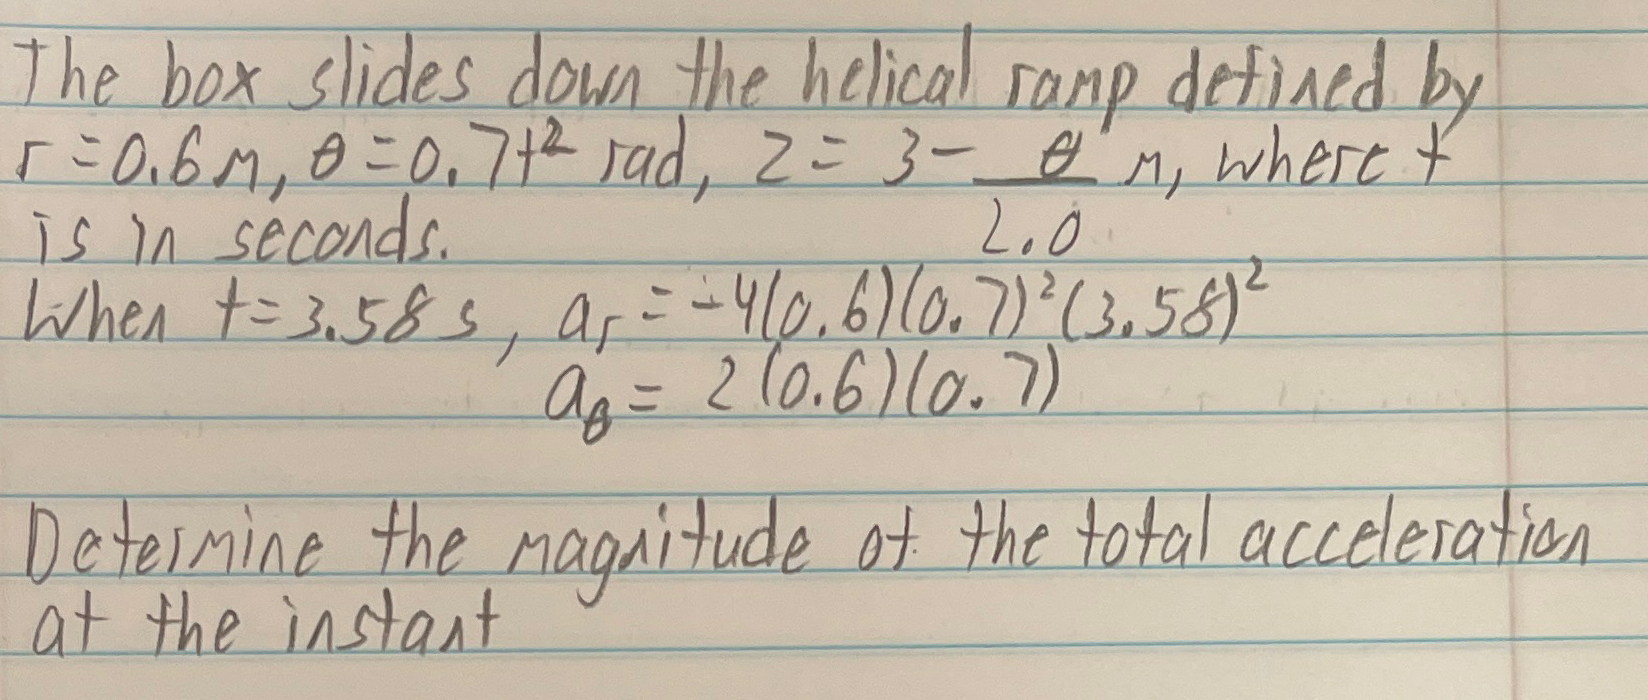 The box slides down the helical ramp defined by
r = 0.6 m, θ = 0.7t² rad, z = 3 - θ/2.0 m, where t
is in seconds.
When t = 3.58 s, aᵣ = -4(0.6)(0.7)²(3.58)²
a_θ = 2(0.6)(0.7)
Determine the magnitude of the total acceleration
at the instant